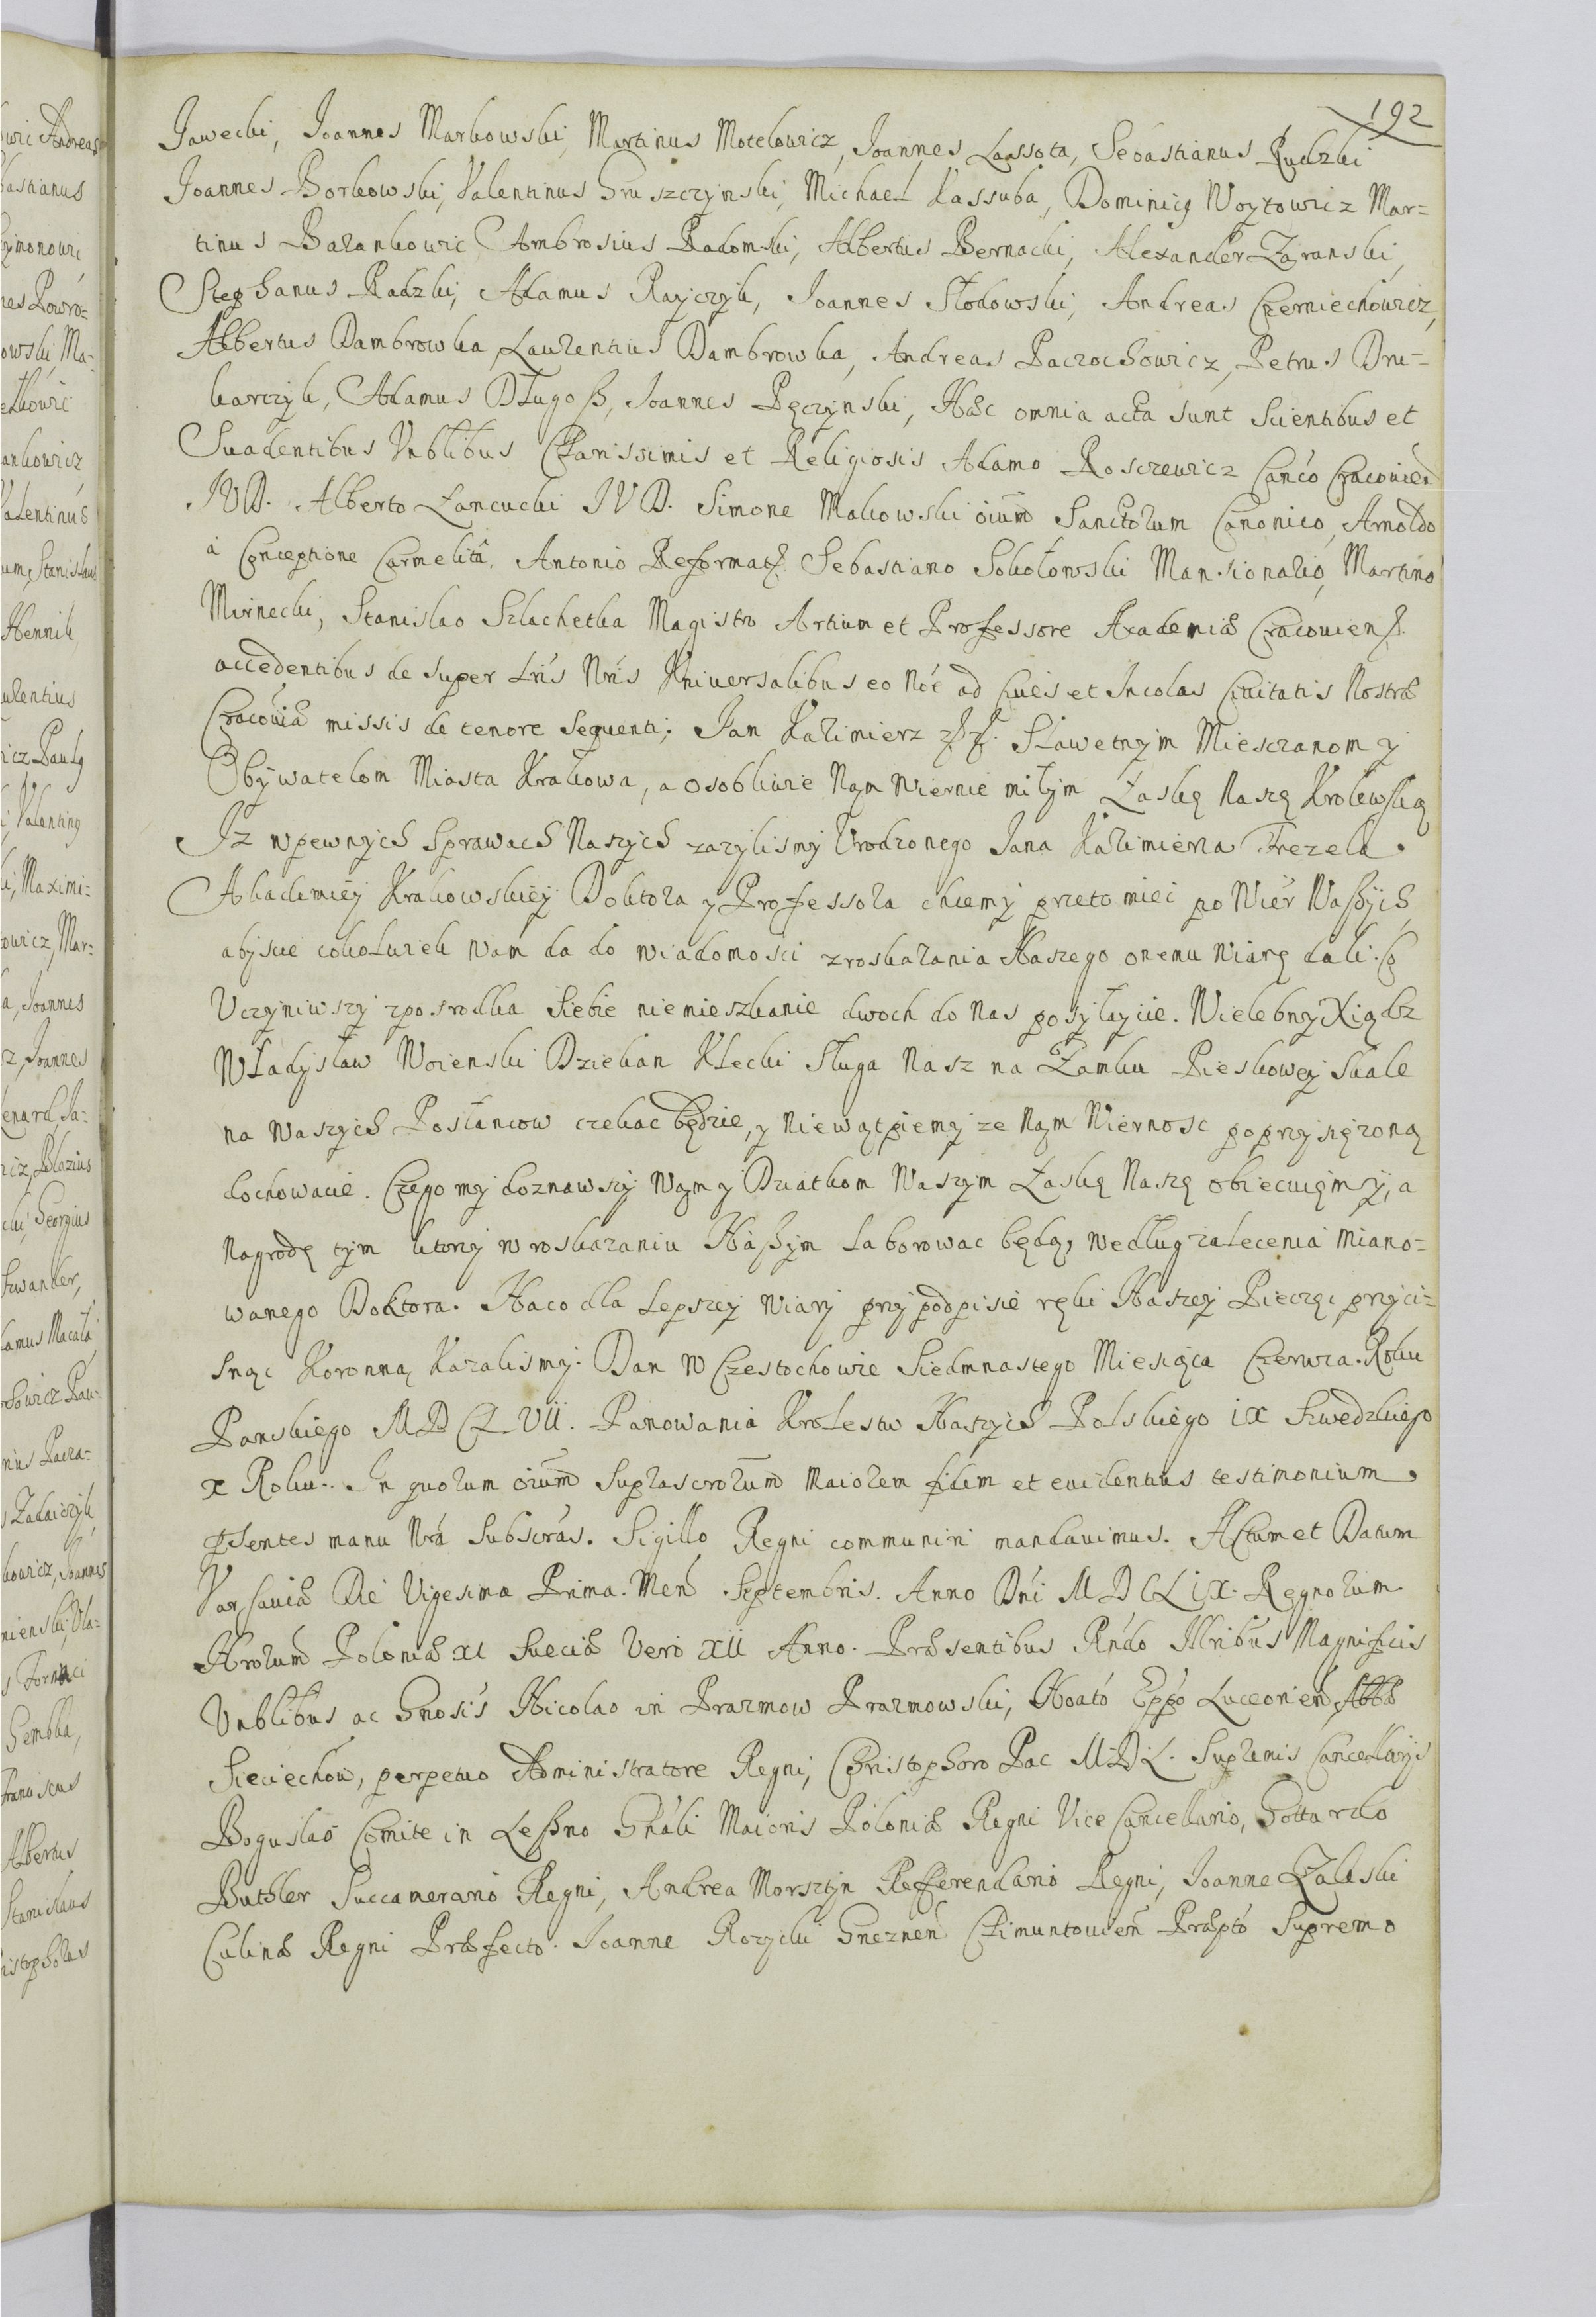 192
Jawecki, Joannes Markowski, Martinus Motelowicz, Joannes Laassota, Sebastianus Rudzki
Joannes Borkowski, Valentinus Gruszczynski, Michael Kassuba, Dominicq Woytowicz Mar=
tinus Barankowic Ambrosius Radomski, Albertus Bernacki, Alexander Zaranski,
Stephanus Radzki, Adamus Rayczyk, Joannes Słodowski, Andreas Czerniechowicz,
Albertus Dambrowka, Laurentius Dambrowka, Andreas Paczochowicz, Petrus Dru=
karczyk, Adamus Długoß, Joannes Pęczynski, Hæc omnia acta sunt Scientibus et
Suadentibus Vnblibus Clarissimis et Religiosis Adamo Roszewicz Canco Cracovien
IVD. Alberto Łancucki IVD. Simone Makowski oium Sanctorum Canonico, Arnoldo
à Conceptione Carmelita, Antonio Reformat. Sebastiano Sokołowski Mansionario, Martino
Mirnecki, Stanislao Szlachetka Magistro Artium et Professore Academiæ Cracovien.
accedentibus de super Lris Nris Vniversalibus eo Noe ad Cives et Incolas Civitatis Nostræ
Cracoviæ missis de tenore sequenti; Jan Kazimierz Sławetnym Miesczanom y
Obywatelom Miasta Krakowa, a osobliwie Nąm wiernie miłym Łaskę Naszę Krolewską
Iz w pewnych Sprawach Naszych zazylismy Vrodzonego Jana Kazimierza Frezela.
Akademiey Krakowskiey Doktora y Professora chcemy przeto miec po Wier Waßych,
abyscie cokolwiek Wam da do wiadomosci z roskazania Naszego onemu wiarę dali. Co
Vczyniwszy z posrodka siebie niemieszkanie dwoch do Nas posyłaycie. Wielebny Xiądz
Władysław Woienski Dziekan Klecki Sługa Nasz na Zamku Pieskowey Skale
na Waszych Posłancow czekac będzie, y Niewątpiemy ze Nąm Wiernosc poprzysięzoną
dochowacie. Czego my doznawszy Wąm y Dziatkom Waszym Łaskę Naszę obiecuięmy, a
Nagrodę tym ktorzy w roskazaniu Naßym laborowac będą, według zalecenia miano=
wanego Doktora. Naco dla Lepszey wiary przy podpisie ręki Naszey Pieczęc przyci=
snąc Koronną Kazalismy. Dan W Czestochowie Siedmnastego Miesiąca Czerwca. Roku
Panskiego MDCLVII. Panowania Krolestw Naszych Polskiego IX Szwedzkiego
X Roku. In quorum oium Suprascrorum Maiorem fidem et evidentius testimonium,
psentes manu Nra Subscras. Sigillo Regni communiri mandavimus. Actum et Datum
Varsaviæ Die Vigesima Prima. Mens Septembris. Anno Dni MDCLIX. Regnorum
Nrorum Poloniæ XI Sueciæ Vero XII Anno. Præsentibus Rndo Illribus Magnificis
Vnblibus ac Gnosis Nicolao in Prazmow Prazmowski, Noato Eppo Luceorien Abbæ
Sieciechow, perpetuo Administratore Regni, Christophoro Pac M.D.L. Supremis Cancellarijs
Boguslao Comite in Leßno Gnali Maioris Poloniæ Regni Vice Cancellario, Gottardo
Buthler Succamerario Regni, Andrea Morsztyn Refferendario Regni, Joanne Zaleski
Culinæ Regni Præfecto. Joanne Rozycki Gneznen Czimuntovien Præpto Supremo